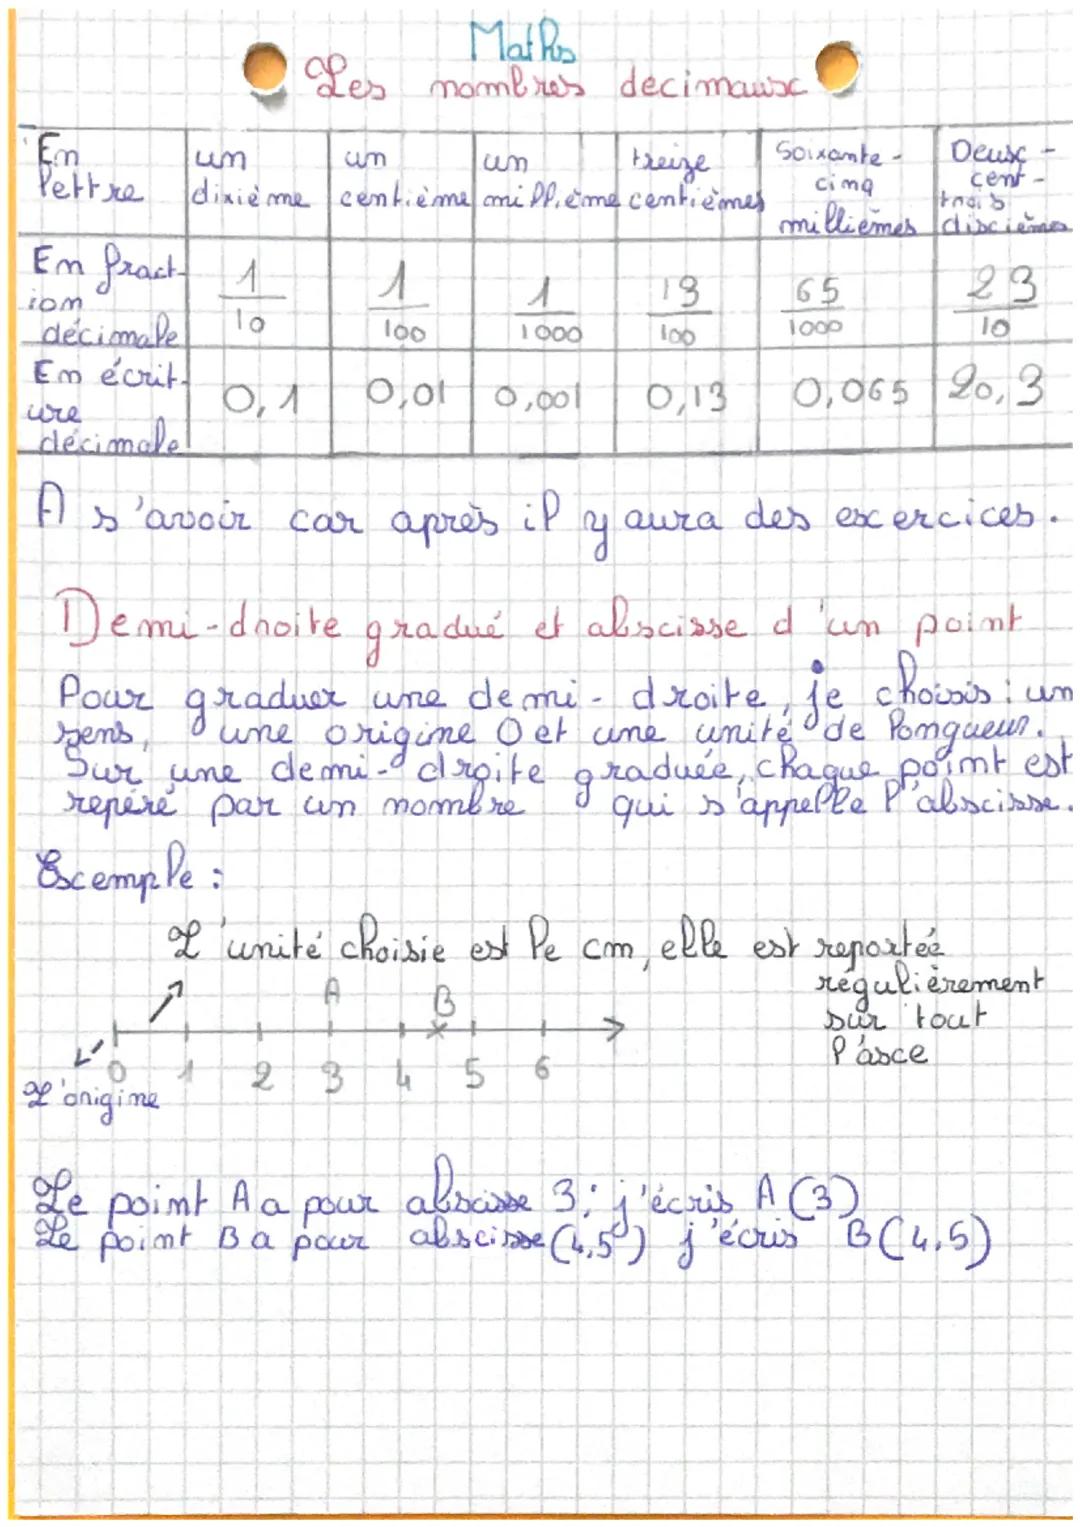 Maths
Les nombres decimaux
En lettre | un dixième | un centième | un millième | treize centièmes | Soixante-cinq millièmes | Deux-cent-trois dixièmes
En fraction décimale | 1/10 | 1/100 | 1/1000 | 13/100 | 65/1000 | 23/10
En écriture décimale | 0,1 | 0,01 | 0,001 | 0,13 | 0,065 | 20,3
A s'avoir car après il y aura des exercices.
Demi-droite gradué et abscisse d'un point
Pour graduer une demi-droite, je choisis : un
sens, une origine O et une unité de longueur.
Sur une demi-droite graduée, chaque point est
repéré par un nombre qui s'appelle l'abscisse.
Exemple :
L'unité choisie est le cm, elle est reportée
régulièrement
sur tout
l'axe
A B
0 1 2 3 4 5 6
L'origine
Le point A a pour abscisse 3 ; j'écris A (3)
Le point B a pour abscisse (4,5) j'écris B (4,5)